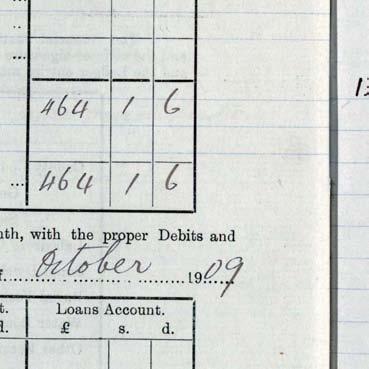 ..
...
464 1 6
... 464 1 6
nth, with the proper Debits and
f......October......1909......
t. Loans Account.
d. £ s. d.